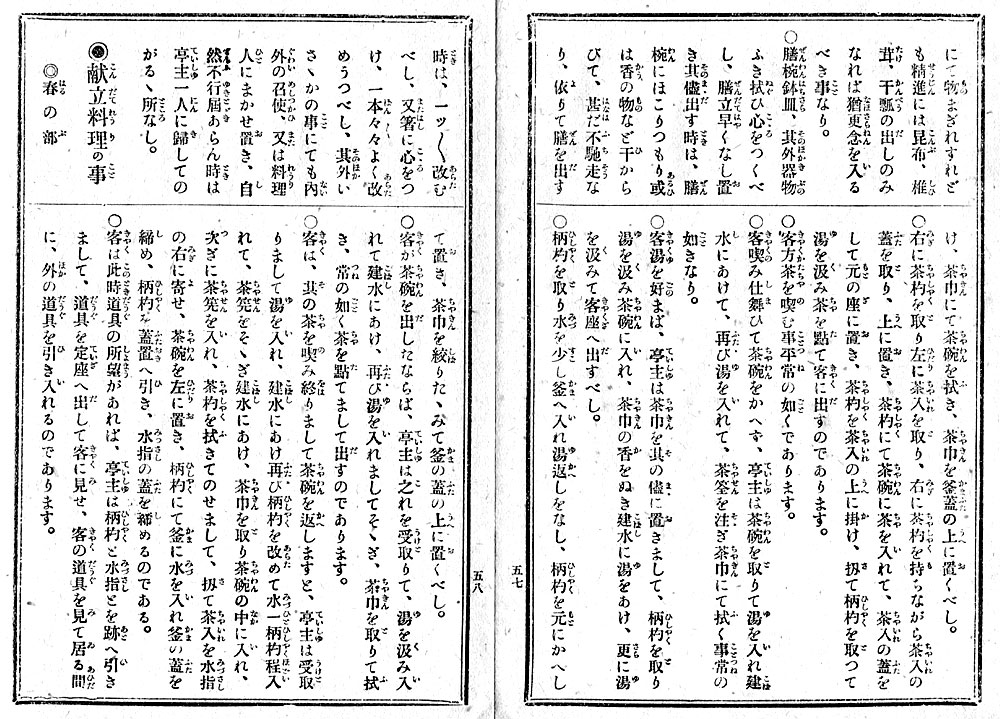 にて物まぎれすれど
も精進には昆布、椎
茸、干瓢の出しのみ
なれば猶更念を入る
べき事なり。
○膳椀鉢皿、其外器物
ふき拭ひ心をつくべ
し、膳立早くなし置
き其儘出す時は、膳
椀にほこりつもり或
は香の物など干から
びて、甚だ不馳走な
り、依りて膳を出す
け、茶巾にて茶碗を拭き、茶巾を釜蓋の上に置くべし。
○右に茶杓を取り左に茶入を取り、右に茶杓を持ちながら茶入の
蓋を取り、上に置き、茶杓にて茶碗に茶を入れて、茶入の蓋を
して元の座に置き、茶杓を茶入の上に掛け、扨て柄杓を取つて
湯を汲み茶を點て客に出すのであります。
○客方茶を喫む事平常の如くであります。
○客喫み仕舞ひて茶碗をかへす、亭主は茶碗を取りて湯を入れ建
水にあけて、再び湯を入れて、茶筌を注ぎ茶巾にて拭く事常の
如きなり。
○客湯を好まば、亭主は茶巾を其の儘に置きまして、柄杓を取り
湯を汲み茶碗に入れ、茶巾の香をぬき建水に湯をあけ、更に湯
を汲みて客座へ出すべし。
○柄杓を取り水を少し釜へ入れ湯返しをなし、柄杓を元にかへし
五七
時は、一ッ〱改む
べし、又箸に心をつ
け、一本々々よく改
めうつべし、其外い
さゝかの事にても內
外の召使、又は料理
人にまかせ置き、自
然不行屆あらん時は
亭主一人に歸しての
がるゝ所なし。
◉献立料理の事
◎春の部
て置き、茶巾を絞りたゝみて釜の蓋の上に置くべし。
○客が茶碗を出したならば、亭主は之れを受取りて、湯を汲み入
れて建水にあけ、再び湯を入れましてそゝぎ、茶巾を取りて拭
き、常の如く茶を點てまして出すのであります。
○客は、其の茶を喫み終りまして茶碗を返しますと、亭主は受取
りまして湯を入れ、建水にあけ再び柄杓を改めて水一柄杓程入
れて、茶筅をそゝぎ建水にあけ、茶巾を取り茶碗の中に入れ、
次ぎに茶筅を入れ、茶杓を拭きてのせまして、扨て茶入を水指
の右に寄せ、茶碗を左に置き、柄杓にて釜に水を入れ釜の蓋を
締め、柄杓を蓋置へ引き、水指の蓋を締めるのである。
○客は此時道具の所望があれば、亭主は柄杓と水指とを跡へ引き
まして、道具を定座へ出して客に見せ、客の道具を見て居る間
に、外の道具を引き入れるのであります。
五八